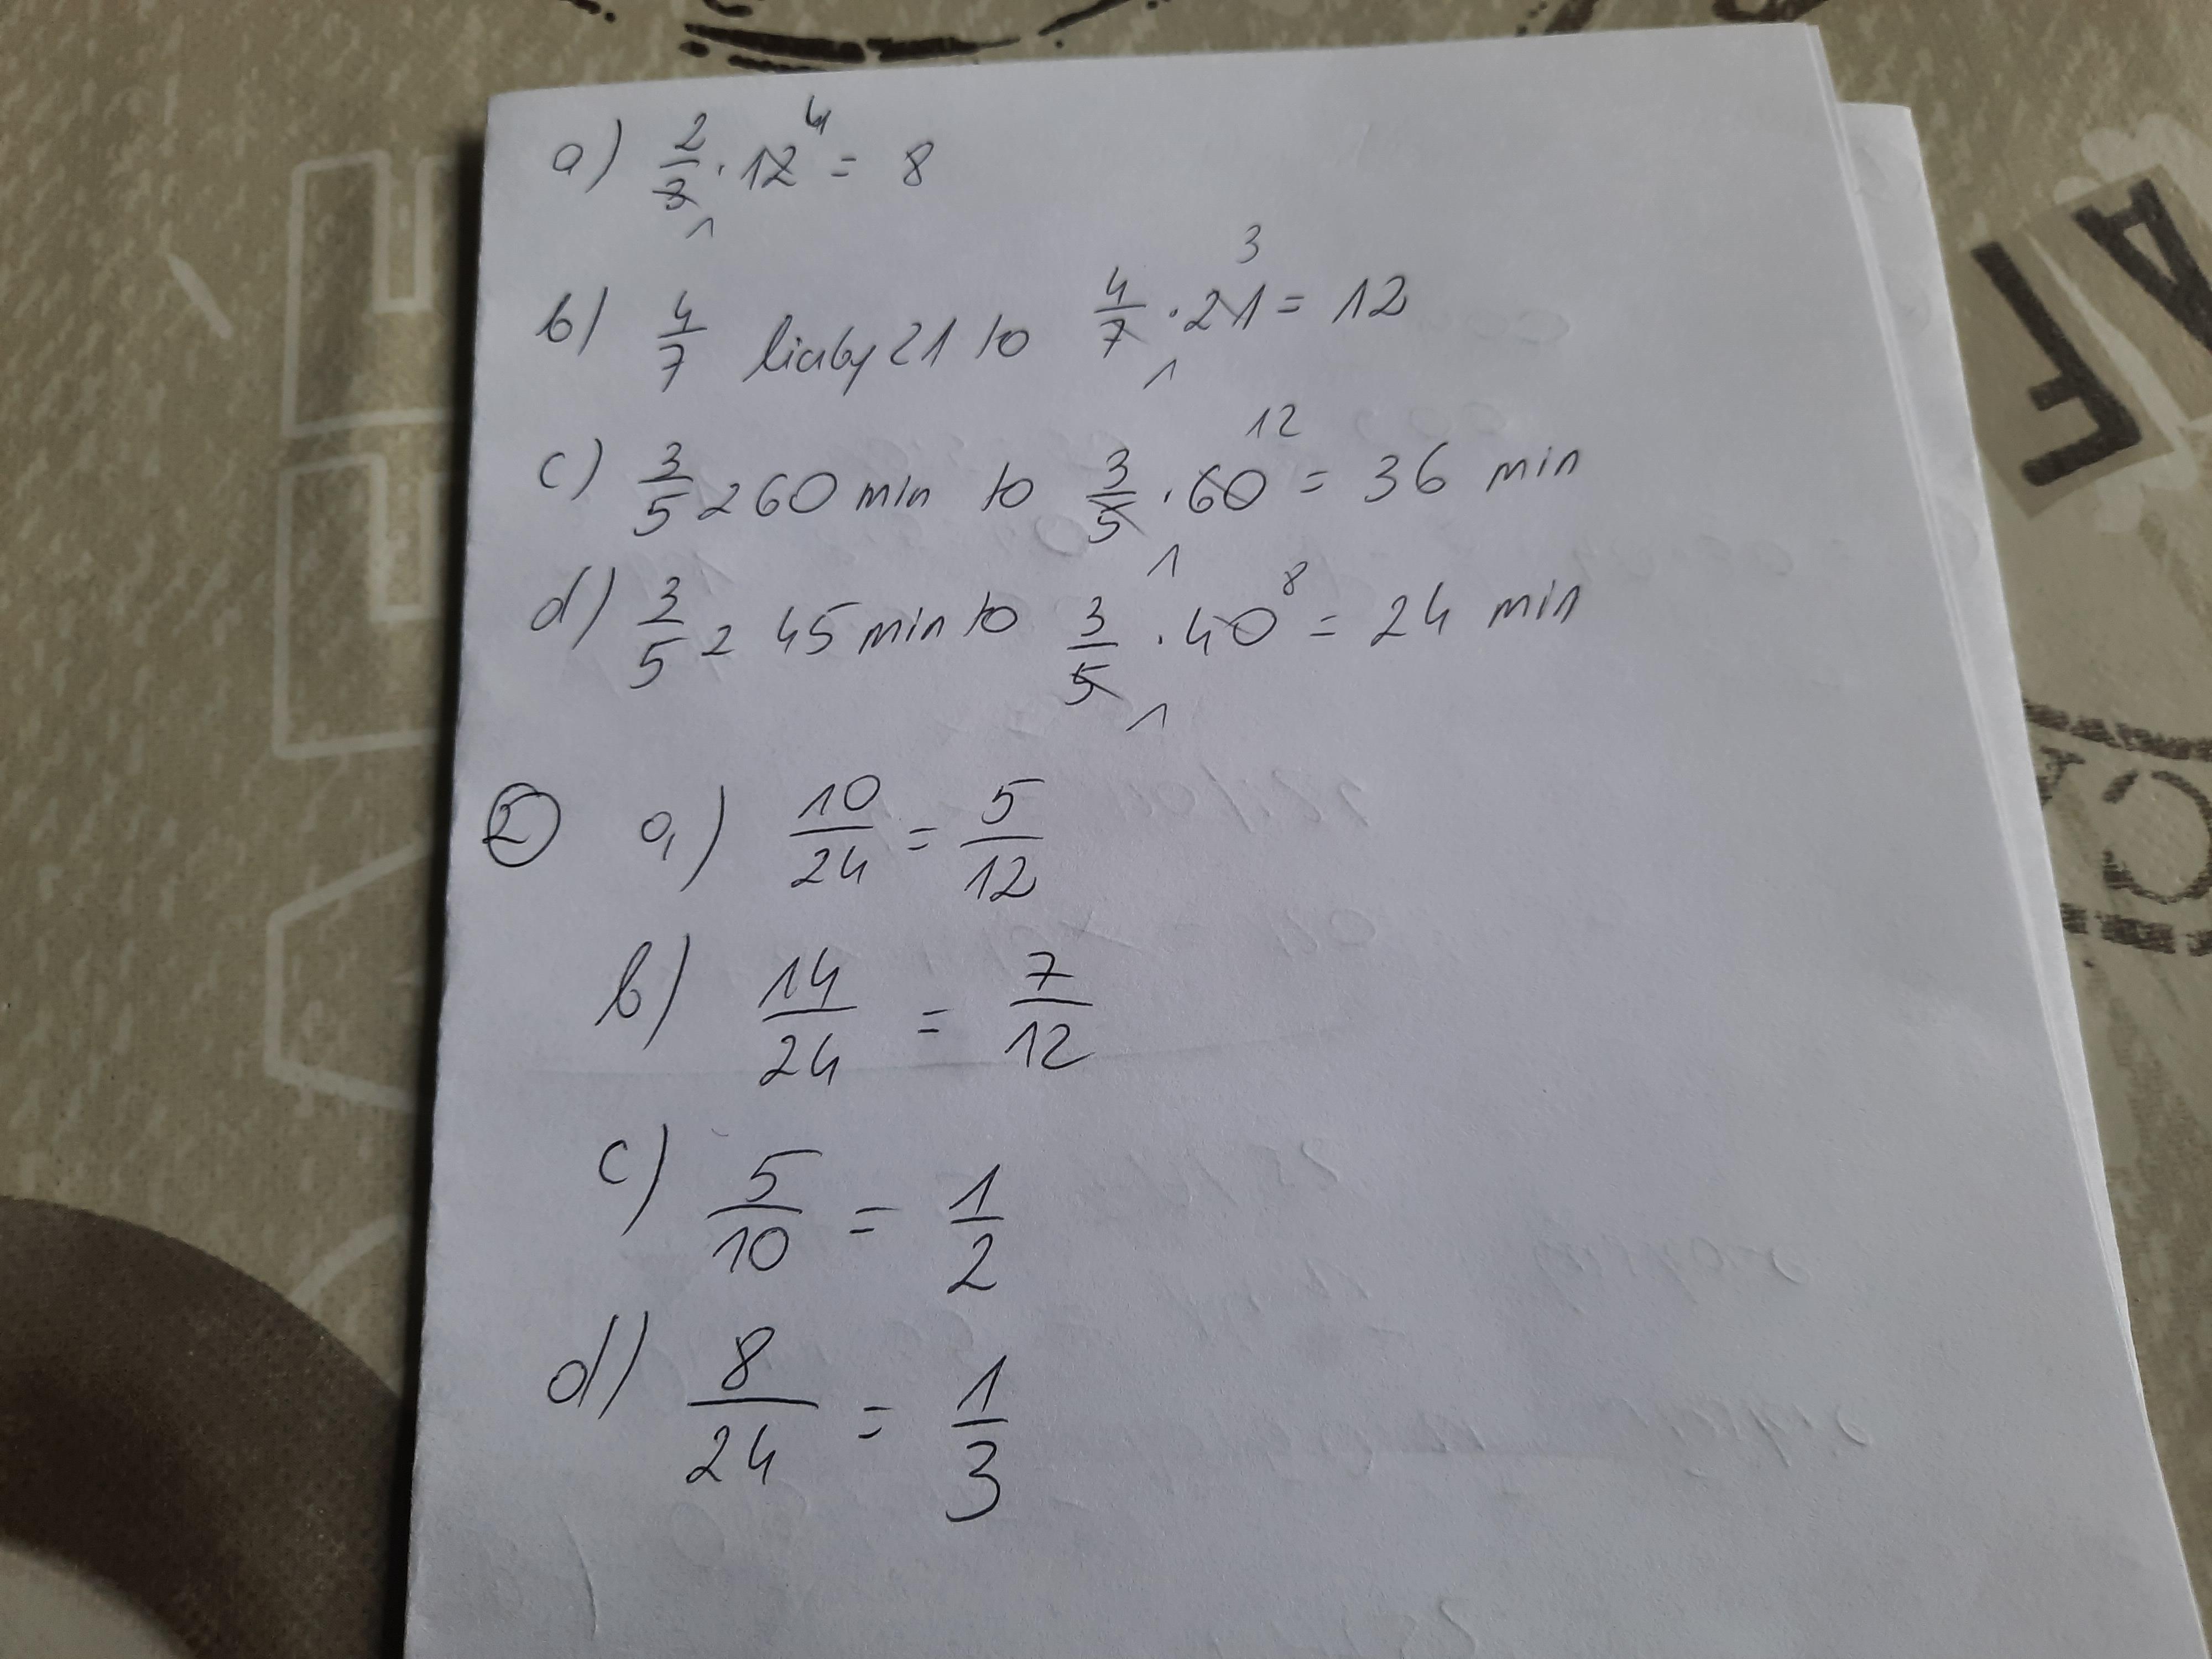 a) 2/3 · 12 = 8
4
1
b) 4/7 liczby 21 to 4/7 · 21 = 12
3
1
c) 3/5 z 60 min to 3/5 · 60 = 36 min
12
1
d) 3/5 z 45 min to 3/5 · 40 = 24 min
8
1
2 a) 10/24 = 5/12
b) 14/24 = 7/12
c) 5/10 = 1/2
d) 8/24 = 1/3
AF
CA